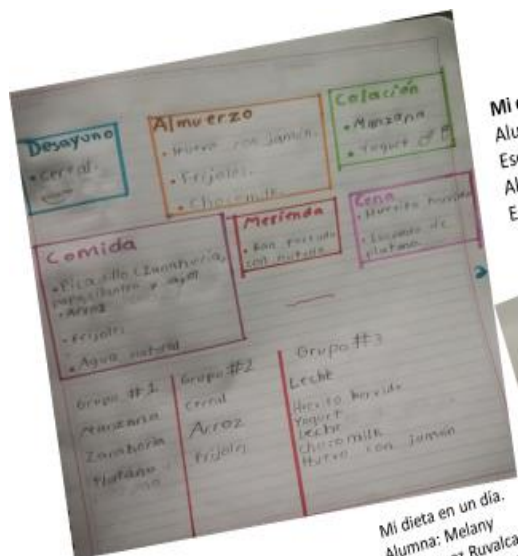 Desayuno
• Cereal.
Almuerzo
• Huevo con jamón.
• Frijoles.
• Chocomilk.
Colación
• Manzana
• Yogurt
Comida
• Picadillo (Zanahoria,
papa, cilantro y
• Arroz
• Frijoles
• Agua natural
Merienda
• Pan tostado
con
Cena
• Huevito hervido
• Licuado de
platano
Grupo #1
Manzana
Zanahoria
Platano
Grupo #2
Cereal
Arroz
Frijoles
Grupo #3
Leche
Huevito hervido
Yogurt
Leche
Chocomilk
Huevo con jamón
Mi
Alu
Es
Al
E
Mi dieta en un día.
Alumna: Melany
Ruvalca